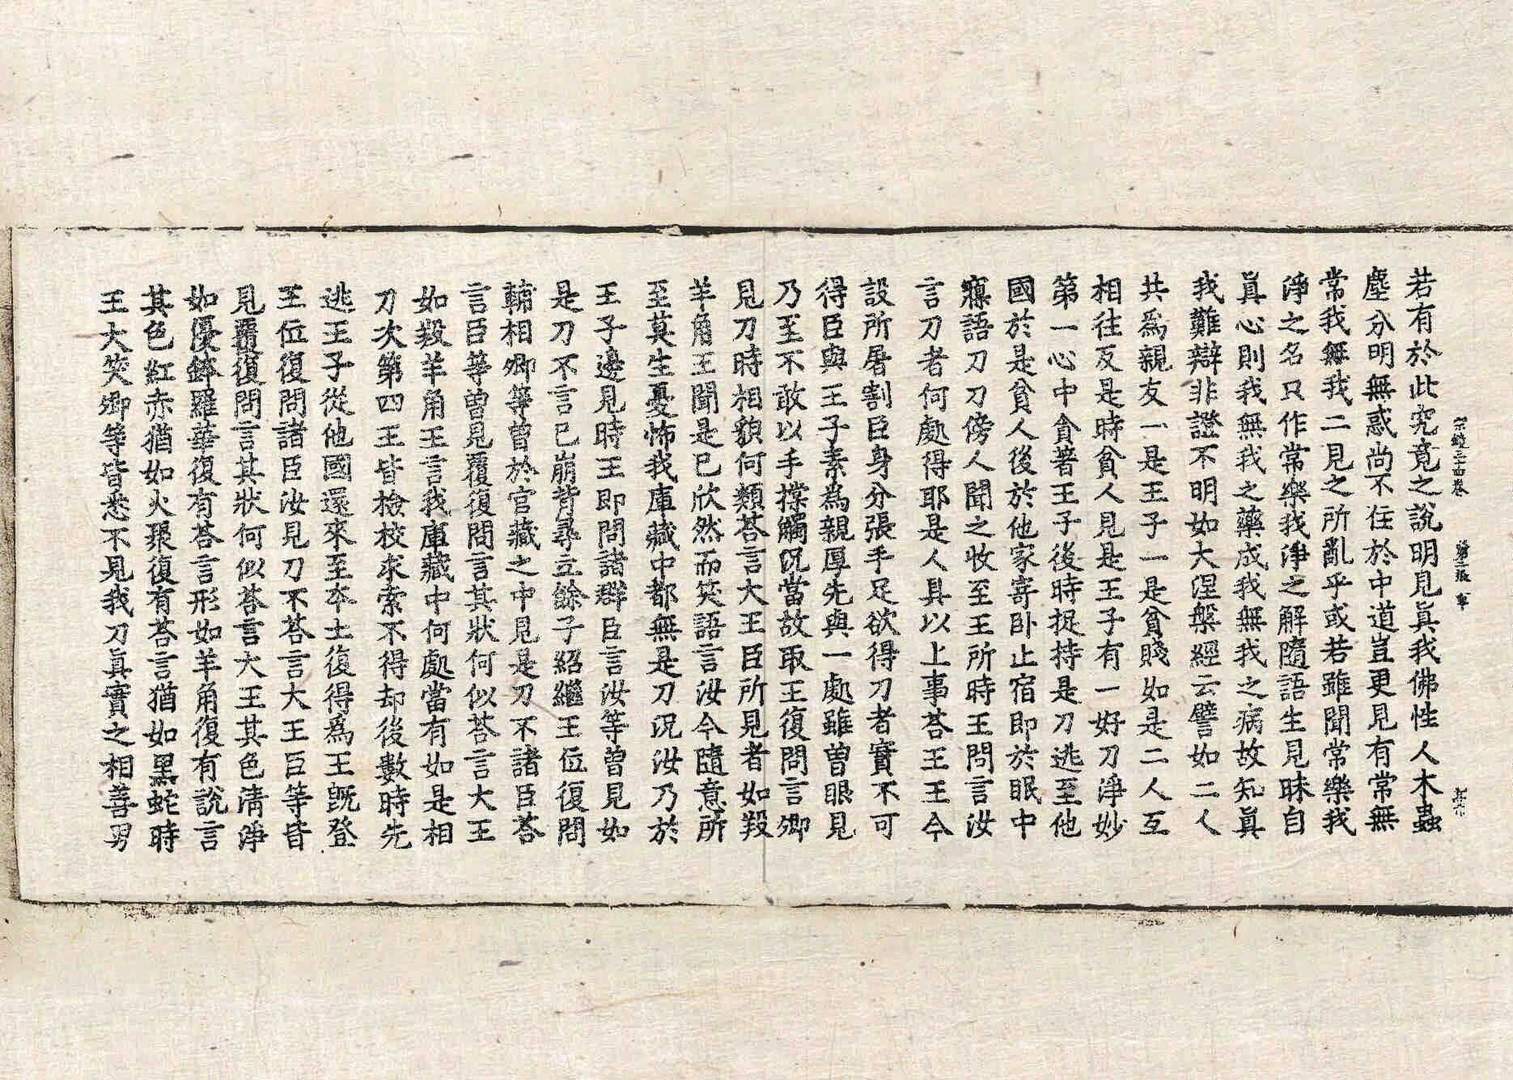 若有於此究竟之說明見眞我佛性人木蟲
塵分明無惑尚不住於中道豈更見有常無
常我無我二見之所亂乎或若雖聞常樂我
淨之名只作常樂我淨之解隨語生見昧自
眞心則我無我之藥成我無我之病故知眞
我難辯非證不明如大涅槃經云譬如二人
共爲親友一是王子一是貧賤如是二人互
相往反是時貧人見是王子有一好刀淨妙
第一心中貪著王子後時捉持是刀逃至他
國於是貧人後於他家寄卧止宿即於眠中
寱語刀刀傍人聞之收至王所時王問言汝
言刀者何處得耶是人具以上事荅王王今
設所屠割臣身分張手足欲得刀者實不可
得臣與王子素爲親厚先與一處雖曽眼見
乃至不敢以手摚觸况當故取王復問言卿
見刀時相貌何類荅言大王臣所見者如羖
羊角王聞是已欣然而笑語言汝今隨意所
至莫生憂怖我庫藏中都無是刀况汝乃於
王子邊見時王即問諸群臣言汝等曽見如
是刀不言已崩背尋立餘子紹繼王位復問
輔相卿等曽於官藏之中見是刀不諸臣荅
言臣等曽見覆復問言其狀何似荅言大王
如羖羊角王言我庫藏中何處當有如是相
刀次第四王皆檢校求索不得却後數時先
逃王子從他國還來至本土復得爲王旣登
王位復問諸臣汝見刀不荅言大王臣等皆
見覆復問言其狀何似荅言大王其色清淨
如優鉢羅華復有荅言形如羊角復有說言
其色紅赤猶如火聚復有荅言猶如黑蛇時
王大笑卿等皆悉不見我刀眞實之相善男